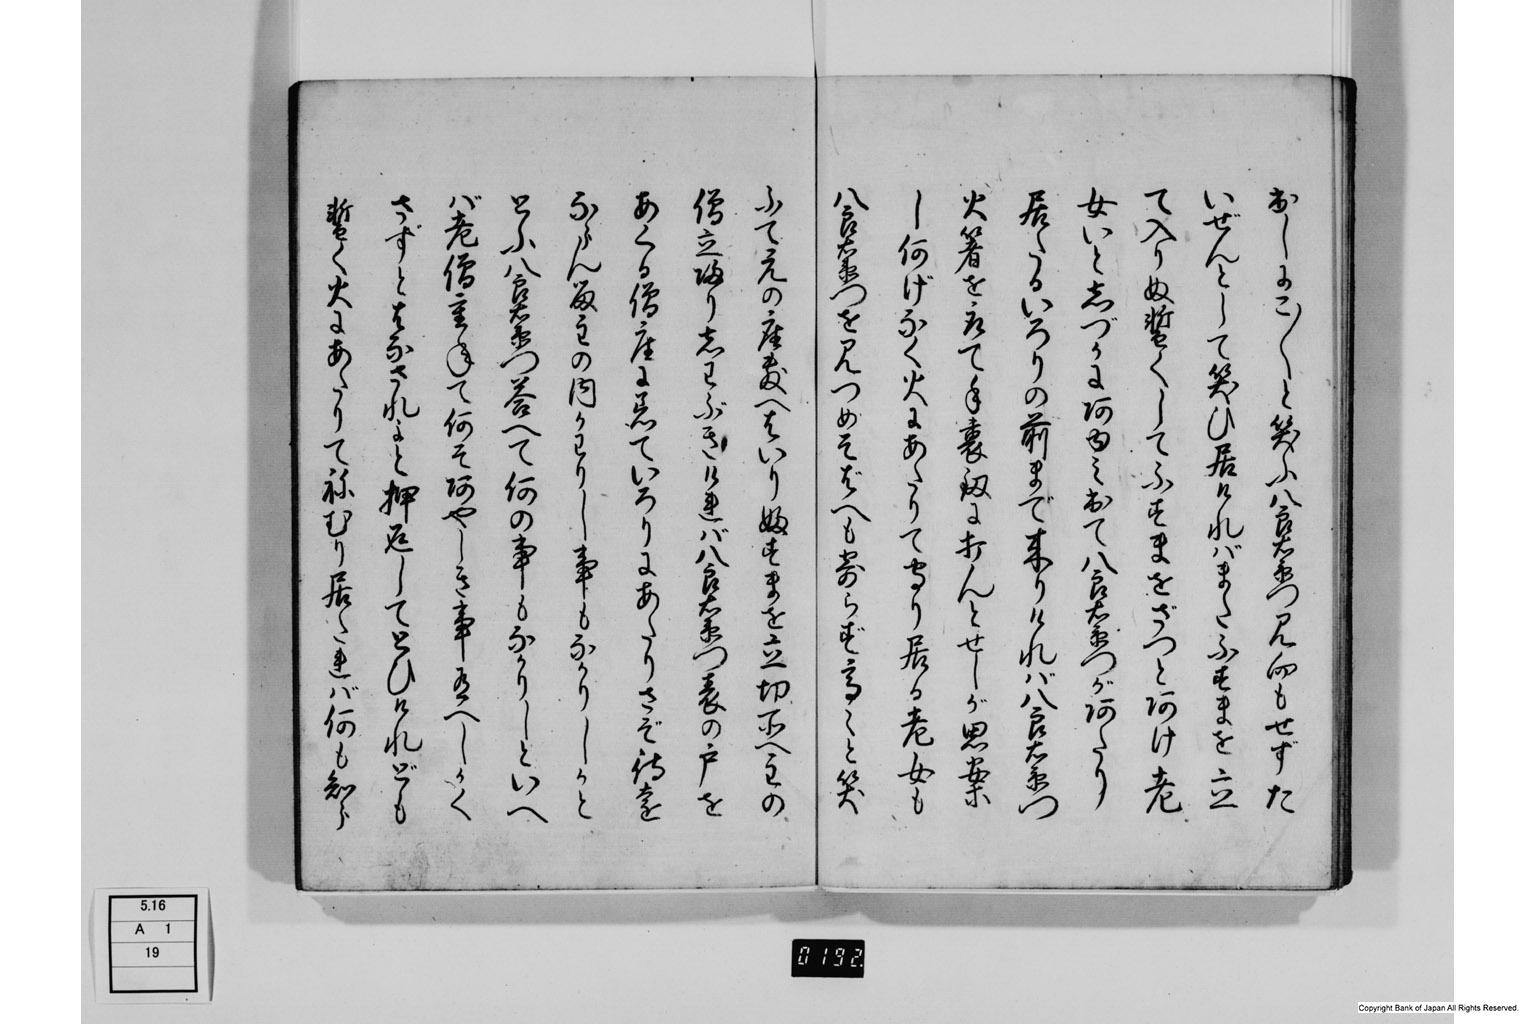 出しにこ〱と笑ふ八良右衛門見向もせずた
いぜんとして笑ひ居けれバまたふすまを立
て入りぬ暫くしてふすまをざつと阿け老
女いとしづかに阿ゆミ出て八良右衛門が阿たり
居たるいろりの前まで来りけれバ八良右衛門
火箸を取て手裏釼に打んとせしが思案
し何げなく火にあたりて守り居る老女も
八良右衛門を見つめそばへも寄らず高々と笑
ふて元の座敷へはいり婦すまを立切所へ主の
僧立帰りしわぶきけれバ八良右衛門表の戸を
あくる僧座に着ていろりにあたりさぞ待遠
ならん留主の内かわりし事もなかりしかと
とふ八良右衛門答へて何の事もなかりしといへ
バ老僧重ねて何そ阿やしき事有へしかく
さずとはなされよと押返してとひけれども
暫く火にあたりて祢むり居たれバ何も知ら
5.16
A 1
19
0192
Copyright Bank of Japan All Rights Reserved.